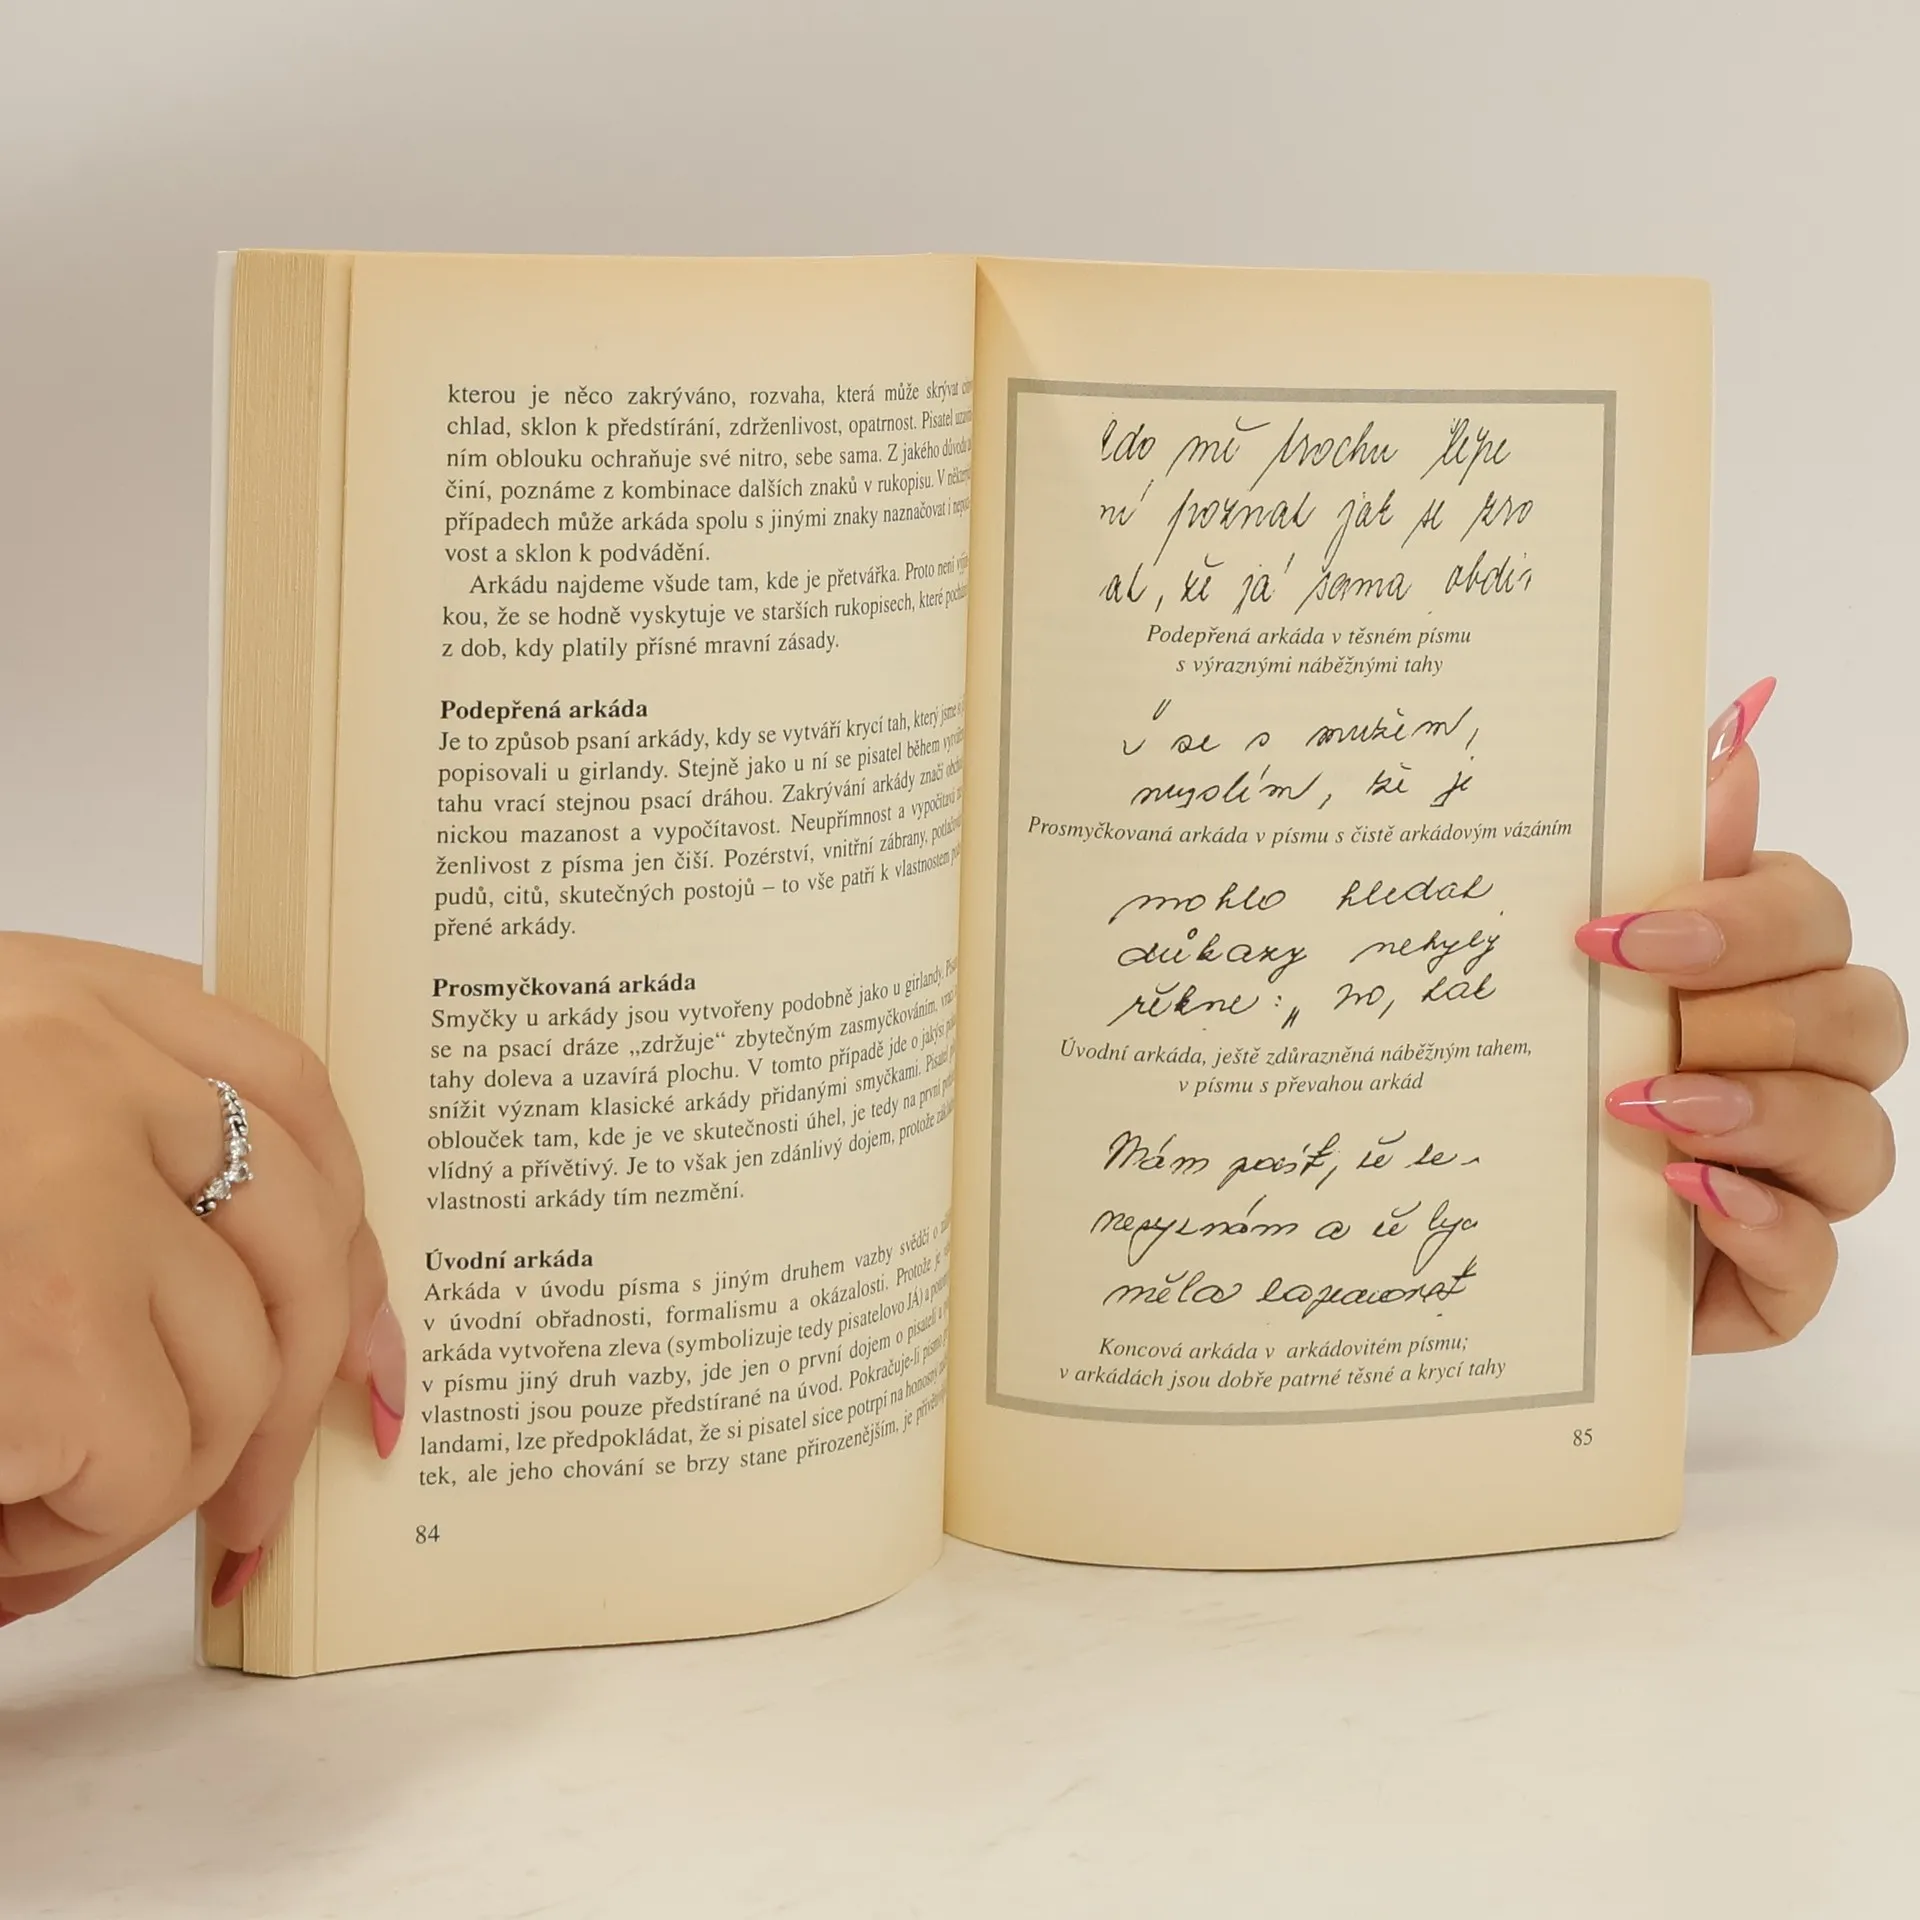 kterou je něco zakrýváno, rozvaha, která může skrývat
chlad, sklon k předstírání, zdrženlivost, opatrnost. Pisatel
ním oblouku ochraňuje své nitro, sebe sama. Z jakého důvodu
činí, poznáme z kombinace dalších znaků v rukopisu. V
případech může arkáda spolu s jinými znaky naznačovat i
vost a sklon k podvádění.
Arkádu najdeme všude tam, kde je přetvářka. Proto není
kou, že se hodně vyskytuje ve starších rukopisech, které
z dob, kdy platily přísné mravní zásady.
Podepřená arkáda
Je to způsob psaní arkády, kdy se vytváří krycí tah, který jsme
popisovali u girlandy. Stejně jako u ní se pisatel během
tahu vrací stejnou psací dráhou. Zakrývání arkády značí
nickou mazanost a vypočítavost. Neupřímnost a
ženlivost z písma jen čiší. Pozérství, vnitřní zábrany,
pudů, citů, skutečných postojů – to vše patří k vlastnostem
přené arkády.
Prosmyčkovaná arkáda
Smyčky u arkády jsou vytvořeny podobně jako u girlandy.
se na psací dráze „zdržuje“ zbytečným zasmyčkováním,
tahy doleva a uzavírá plochu. V tomto případě jde o jakýsi
snížit význam klasické arkády přidanými smyčkami. Pisatel
oblouček tam, kde je ve skutečnosti úhel, je tedy na první
vlídný a přívětivý. Je to však jen zdánlivý dojem, protože
vlastnosti arkády tím nezmění.
Úvodní arkáda
Arkáda v úvodu písma s jiným druhem vazby svědčí o
v úvodní obřadnosti, formalismu a okázalosti. Protože je
arkáda vytvořena zleva (symbolizuje tedy pisatelovo JÁ) a
v písmu jiný druh vazby, jde jen o první dojem o pisateli a
vlastnosti jsou pouze předstírané na úvod. Pokračuje-li písmo
landami, lze předpokládat, že si pisatel sice potrpí na honosný
tek, ale jeho chování se brzy stane přirozenějším, je
84
mě trochu lépe
ní poznat jak se
at, že já sama
Podepřená arkáda v těsném písmu
s výraznými náběžnými tahy
se s mužem,
myslím, že je
Prosmyčkovaná arkáda v písmu s čistě arkádovým vázáním
mohlo hledat
důkazy nebyly
řekne: „ no, tak
Úvodní arkáda, ještě zdůrazněná náběžným tahem,
v písmu s převahou arkád
Mám pocit, že se
nevyznám a že bys
měla
Koncová arkáda v arkádovitém písmu;
v arkádách jsou dobře patrné těsné a krycí tahy
85